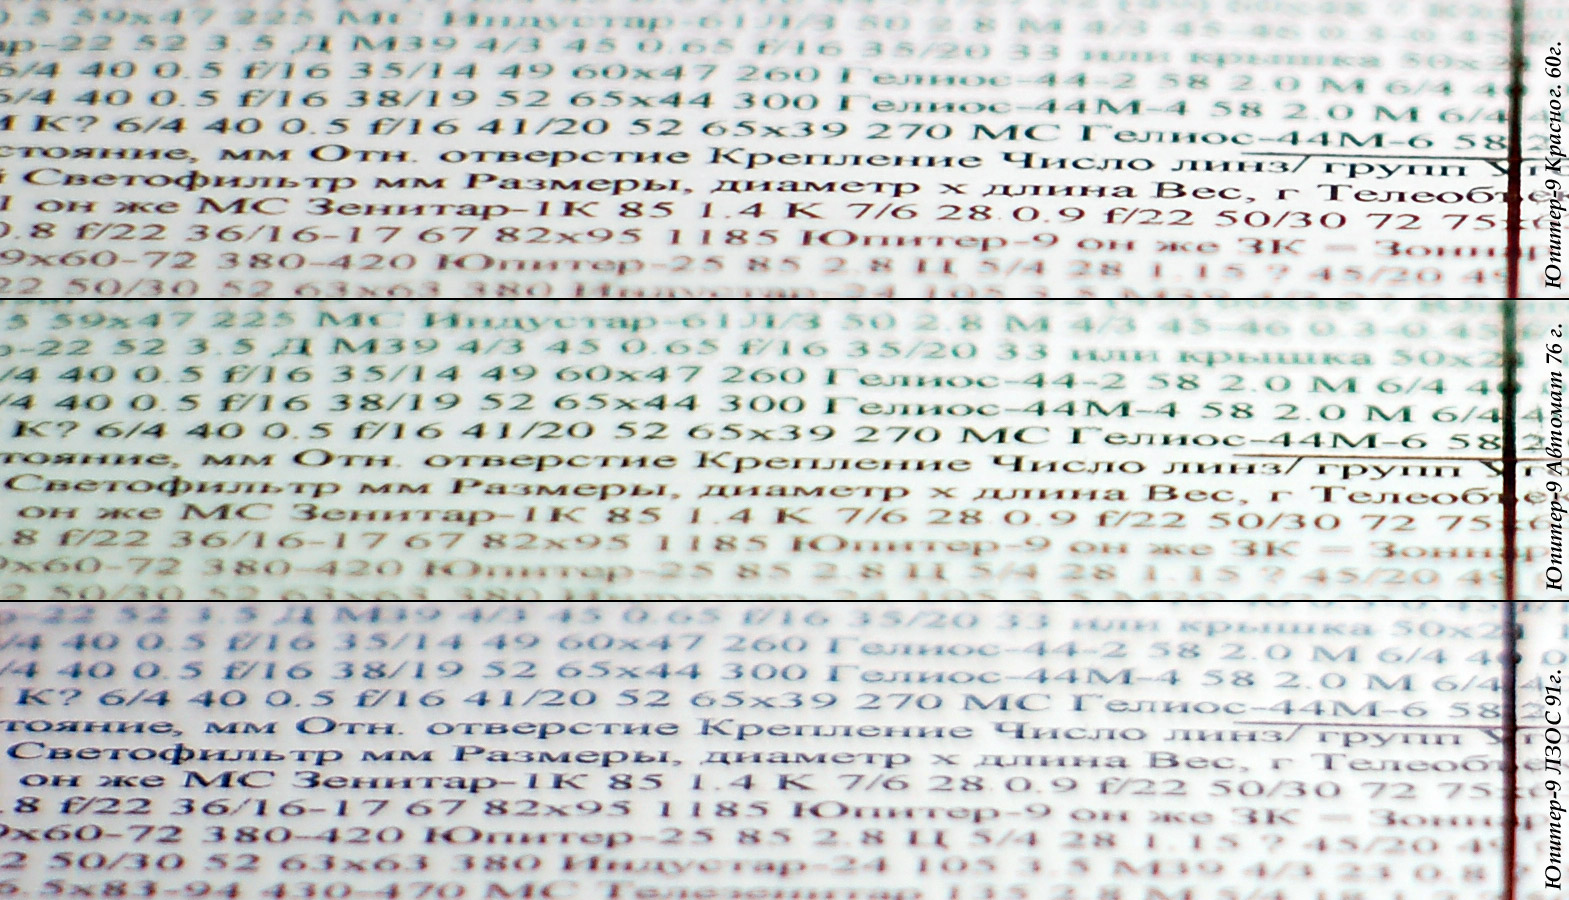 .5 59х47 225 МС Индустар-61Л/З 50 2.8 М 4/3 45-46 0.3-0.45
ар-22 52 3.5 Д М39 4/3 45 0.65 f/16 35/20 33 или крышка 50х2
6/4 40 0.5 f/16 35/14 49 60х47 260 Гелиос-44-2 58 2.0 М 6/4 4
6/4 40 0.5 f/16 38/19 52 65х44 300 Гелиос-44М-4 58 2.0 М 6/4 4
К? 6/4 40 0.5 f/16 41/20 52 65х39 270 МС Гелиос-44М-6 58 2
стояние, мм Отн. отверстие Крепление Число линз/ групп Уг
Светофильтр мм Размеры, диаметр х длина Вес, г Телеобъе
он же МС Зенитар-1К 85 1.4 К 7/6 28 0.9 f/22 50/30 72 75х
0.8 f/22 36/16-17 67 82х95 1185 Юпитер-9 он же ЗК – Зонна
9х60-72 380-420 Юпитер-25 85 2.8 Ц 5/4 28 1.15 ? 45/20 49
22 50/30 52 63х63 380 Индустар-24 105 3.5 М39 4/3
Юпитер-9 Красног. 60г.
5 59х47 225 МС Индустар-61Л/З 50 2.8 М 4/3 45-46 0.3-0.45
р-22 52 3.5 Д М39 4/3 45 0.65 f/16 35/20 33 или крышка 50х2
/4 40 0.5 f/16 35/14 49 60х47 260 Гелиос-44-2 58 2.0 М 6/4 4
/4 40 0.5 f/16 38/19 52 65х44 300 Гелиос-44М-4 58 2.0 М 6/4 4
К? 6/4 40 0.5 f/16 41/20 52 65х39 270 МС Гелиос-44М-6 58 2
тояние, мм Отн. отверстие Крепление Число линз/ групп Уг
Светофильтр мм Размеры, диаметр х длина Вес, г Телеобъе
он же МС Зенитар-1К 85 1.4 К 7/6 28 0.9 f/22 50/30 72 75х
.8 f/22 36/16-17 67 82х95 1185 Юпитер-9 он же ЗК – Зонна
9х60-72 380-420 Юпитер-25 85 2.8 Ц 5/4 28 1.15 ? 45/20 49
2 50/30 52 63х63 380
Юпитер-9 Автомат 76 г.
-22 52 3.5 Д М39 4/3 45 0.65 f/16 35/20 33 или крышка 50х2
/4 40 0.5 f/16 35/14 49 60х47 260 Гелиос-44-2 58 2.0 М 6/4 4
/4 40 0.5 f/16 38/19 52 65х44 300 Гелиос-44М-4 58 2.0 М 6/4 4
К? 6/4 40 0.5 f/16 41/20 52 65х39 270 МС Гелиос-44М-6 58 2
тояние, мм Отн. отверстие Крепление Число линз/ групп Уг
Светофильтр мм Размеры, диаметр х длина Вес, г Телеобъе
он же МС Зенитар-1К 85 1.4 К 7/6 28 0.9 f/22 50/30 72 75х
.8 f/22 36/16-17 67 82х95 1185 Юпитер-9 он же ЗК – Зонна
9х60-72 380-420 Юпитер-25 85 2.8 Ц 5/4 28 1.15 ? 45/20 49
2 50/30 52 63х63 380 Индустар-24 105 3.5 М39 4/3 23 0.8
6.5х83-94 430-470 МС Телезенитар 135 2.8 М 5/4 18
Юпитер-9 ЛЗОС 91г.